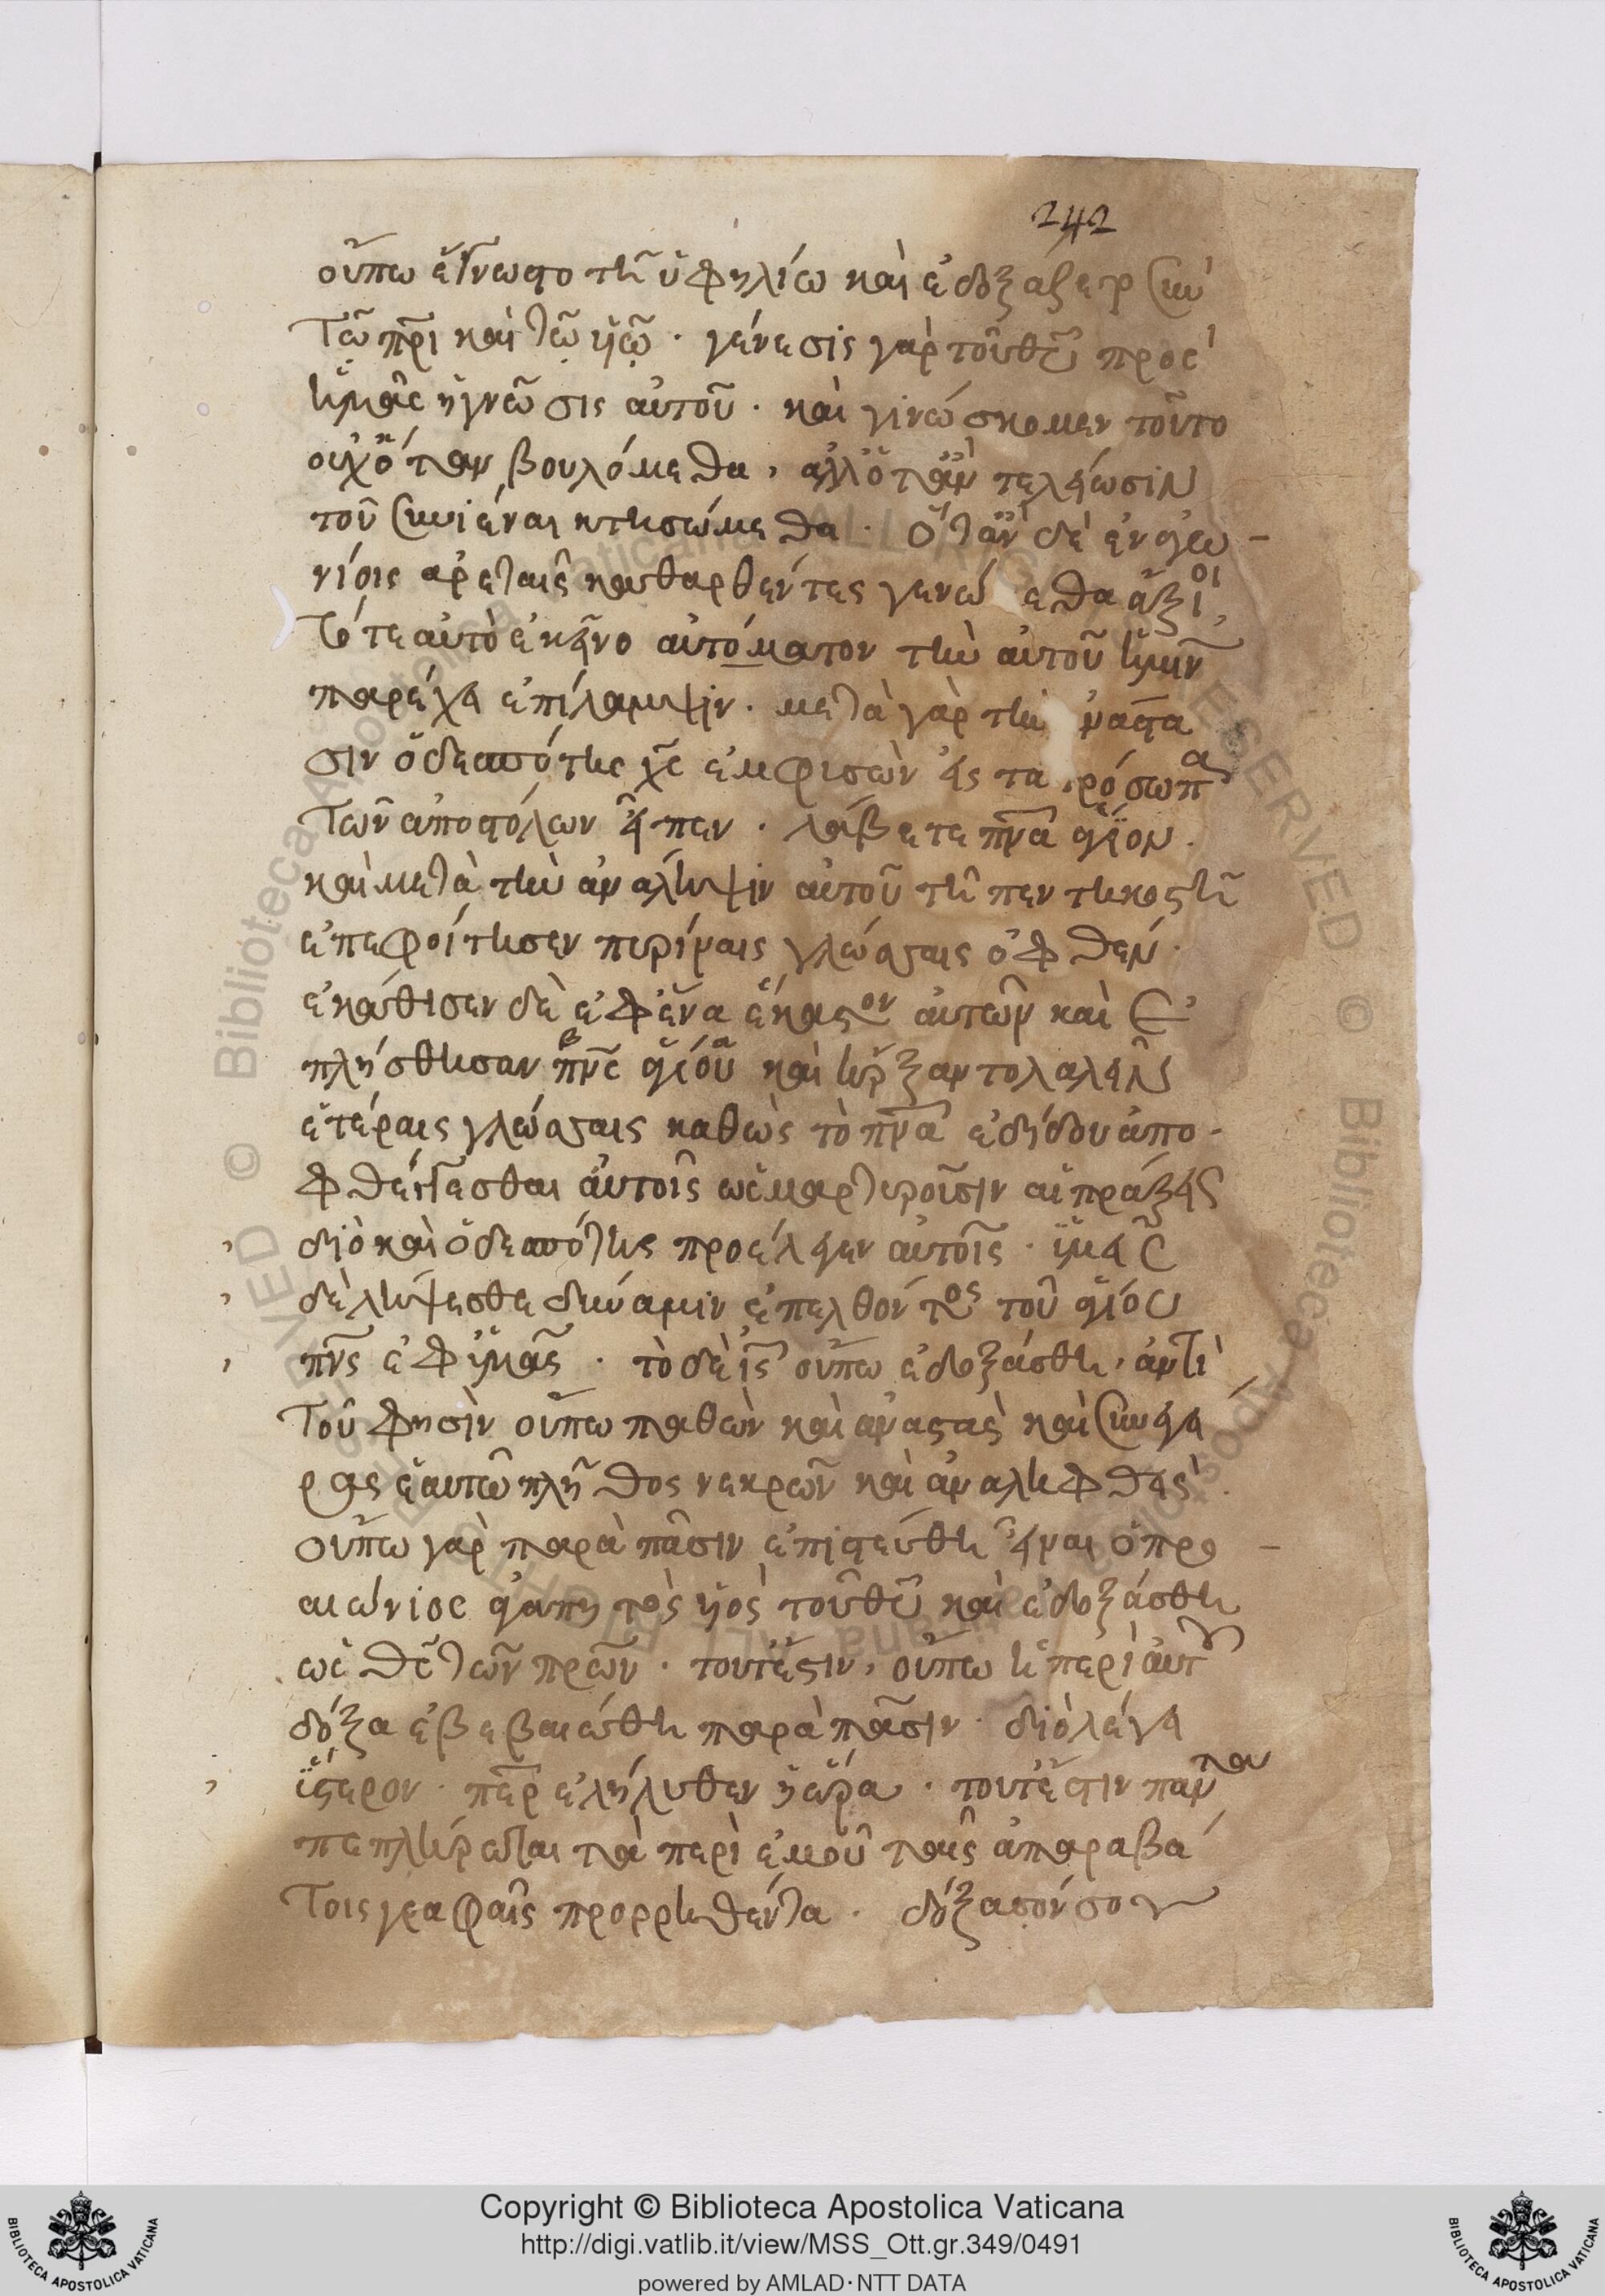 242
οὔπω ἔγνωστο τῆ ὑφηλίω καὶ ἐδοξάζετο σὺν
τῶ πρὶ καὶ τῶ υἱῶ · γένεσις γὰρ τοῦ θυ προσ
ἡμᾶς ἡ γνῶσις αὐτοῦ · καὶ γινώσκομεν τοῦτο
οὐχ ὅταν βουλόμεθα, ἀλλ' ὅταν τελείωσιν
τοῦ συνιέναι κτησώμεθα · ὅταν δὲ ἐν αἰω
νίοις ἀρεταῖς καθαρθέντες γενώ εθα ἄξιοι,
τότε αὐτὸ ἐκεῖνο αὐτόματον τὴν αὐτοῦ ἡμῖν
παρέχει ἐπίλαμψιν · μετὰ γὰρ τὴ νάστα
σιν ὁ δεσπότης χς ἐμφυσῶν εἰς τὰ πρόσωπα
τῶν ἀποστόλων εἶπεν · λάβετε πνα ἅγιον ·
καὶ μετὰ τὴν ἀνάληψιν αὐτοῦ τῆ πεντηκοστῆ
ἐπεφοίτησεν πυρίναις γλώσσαις ὀφθέν ·
ἐκάθισεν δὲ ἐφ' ἕνα ἕκαστον αὐτῶν καὶ ἐ
πλήσθησαν πνς ἁγίου καὶ ἤρξαντο λαλεῖν
ἑτέραις γλώσσαις καθὼς τὸ πνα ἐδίδου ἀπο
φθέγγεσθαι αὐτοῖς ὡς μαρτυροῦσιν αἱ πράξεις
διὸ καὶ ὁ δεσπότης προέλεγεν αὐτοῖς · ὑμεῖς
δὲ λήψεσθε δύναμιν ἐπελθόντος τοῦ ἁγίου
πνς ἐφ' ὑμᾶς · τὸ δὲ ις οὔπω ἐδοξάσθη, ἀντὶ
τοῦ φησὶν οὔπω παθὼν καὶ ἀναστὰς καὶ συνεγεί
ρας ἑαυτῶ πλῆθος νεκρῶν καὶ ἀναληφθείς ·
οὔπω γὰρ παρὰ πᾶσιν ἐπιστεύθη εἶναι ὁ προ
αιώνιος ἀγαπητὸς υἱὸς τοῦ θυ καὶ ἐδοξάσθη
ὡς θς τῶν πρων · τουτέστιν, οὔπω ἡ περὶ αὐτοῦ
δόξα ἐβεβαιώθη παρὰ πᾶσιν · διὸ λέγει
ὕστερον · περ ἐλήλυθεν ἡ ὥρα · τουτέστιν πάντα
πεπλήρωται τὰ περὶ ἐμοῦ ταῖς ἀπαραβά
τοις γραφαῖς προρρηθέντα · δόξασόν σου
Copyright © Biblioteca Apostolica Vaticana
http://digi.vatlib.it/view/MSS_Ott.gr.349/0491
powered by AMLAD·NTT DATA